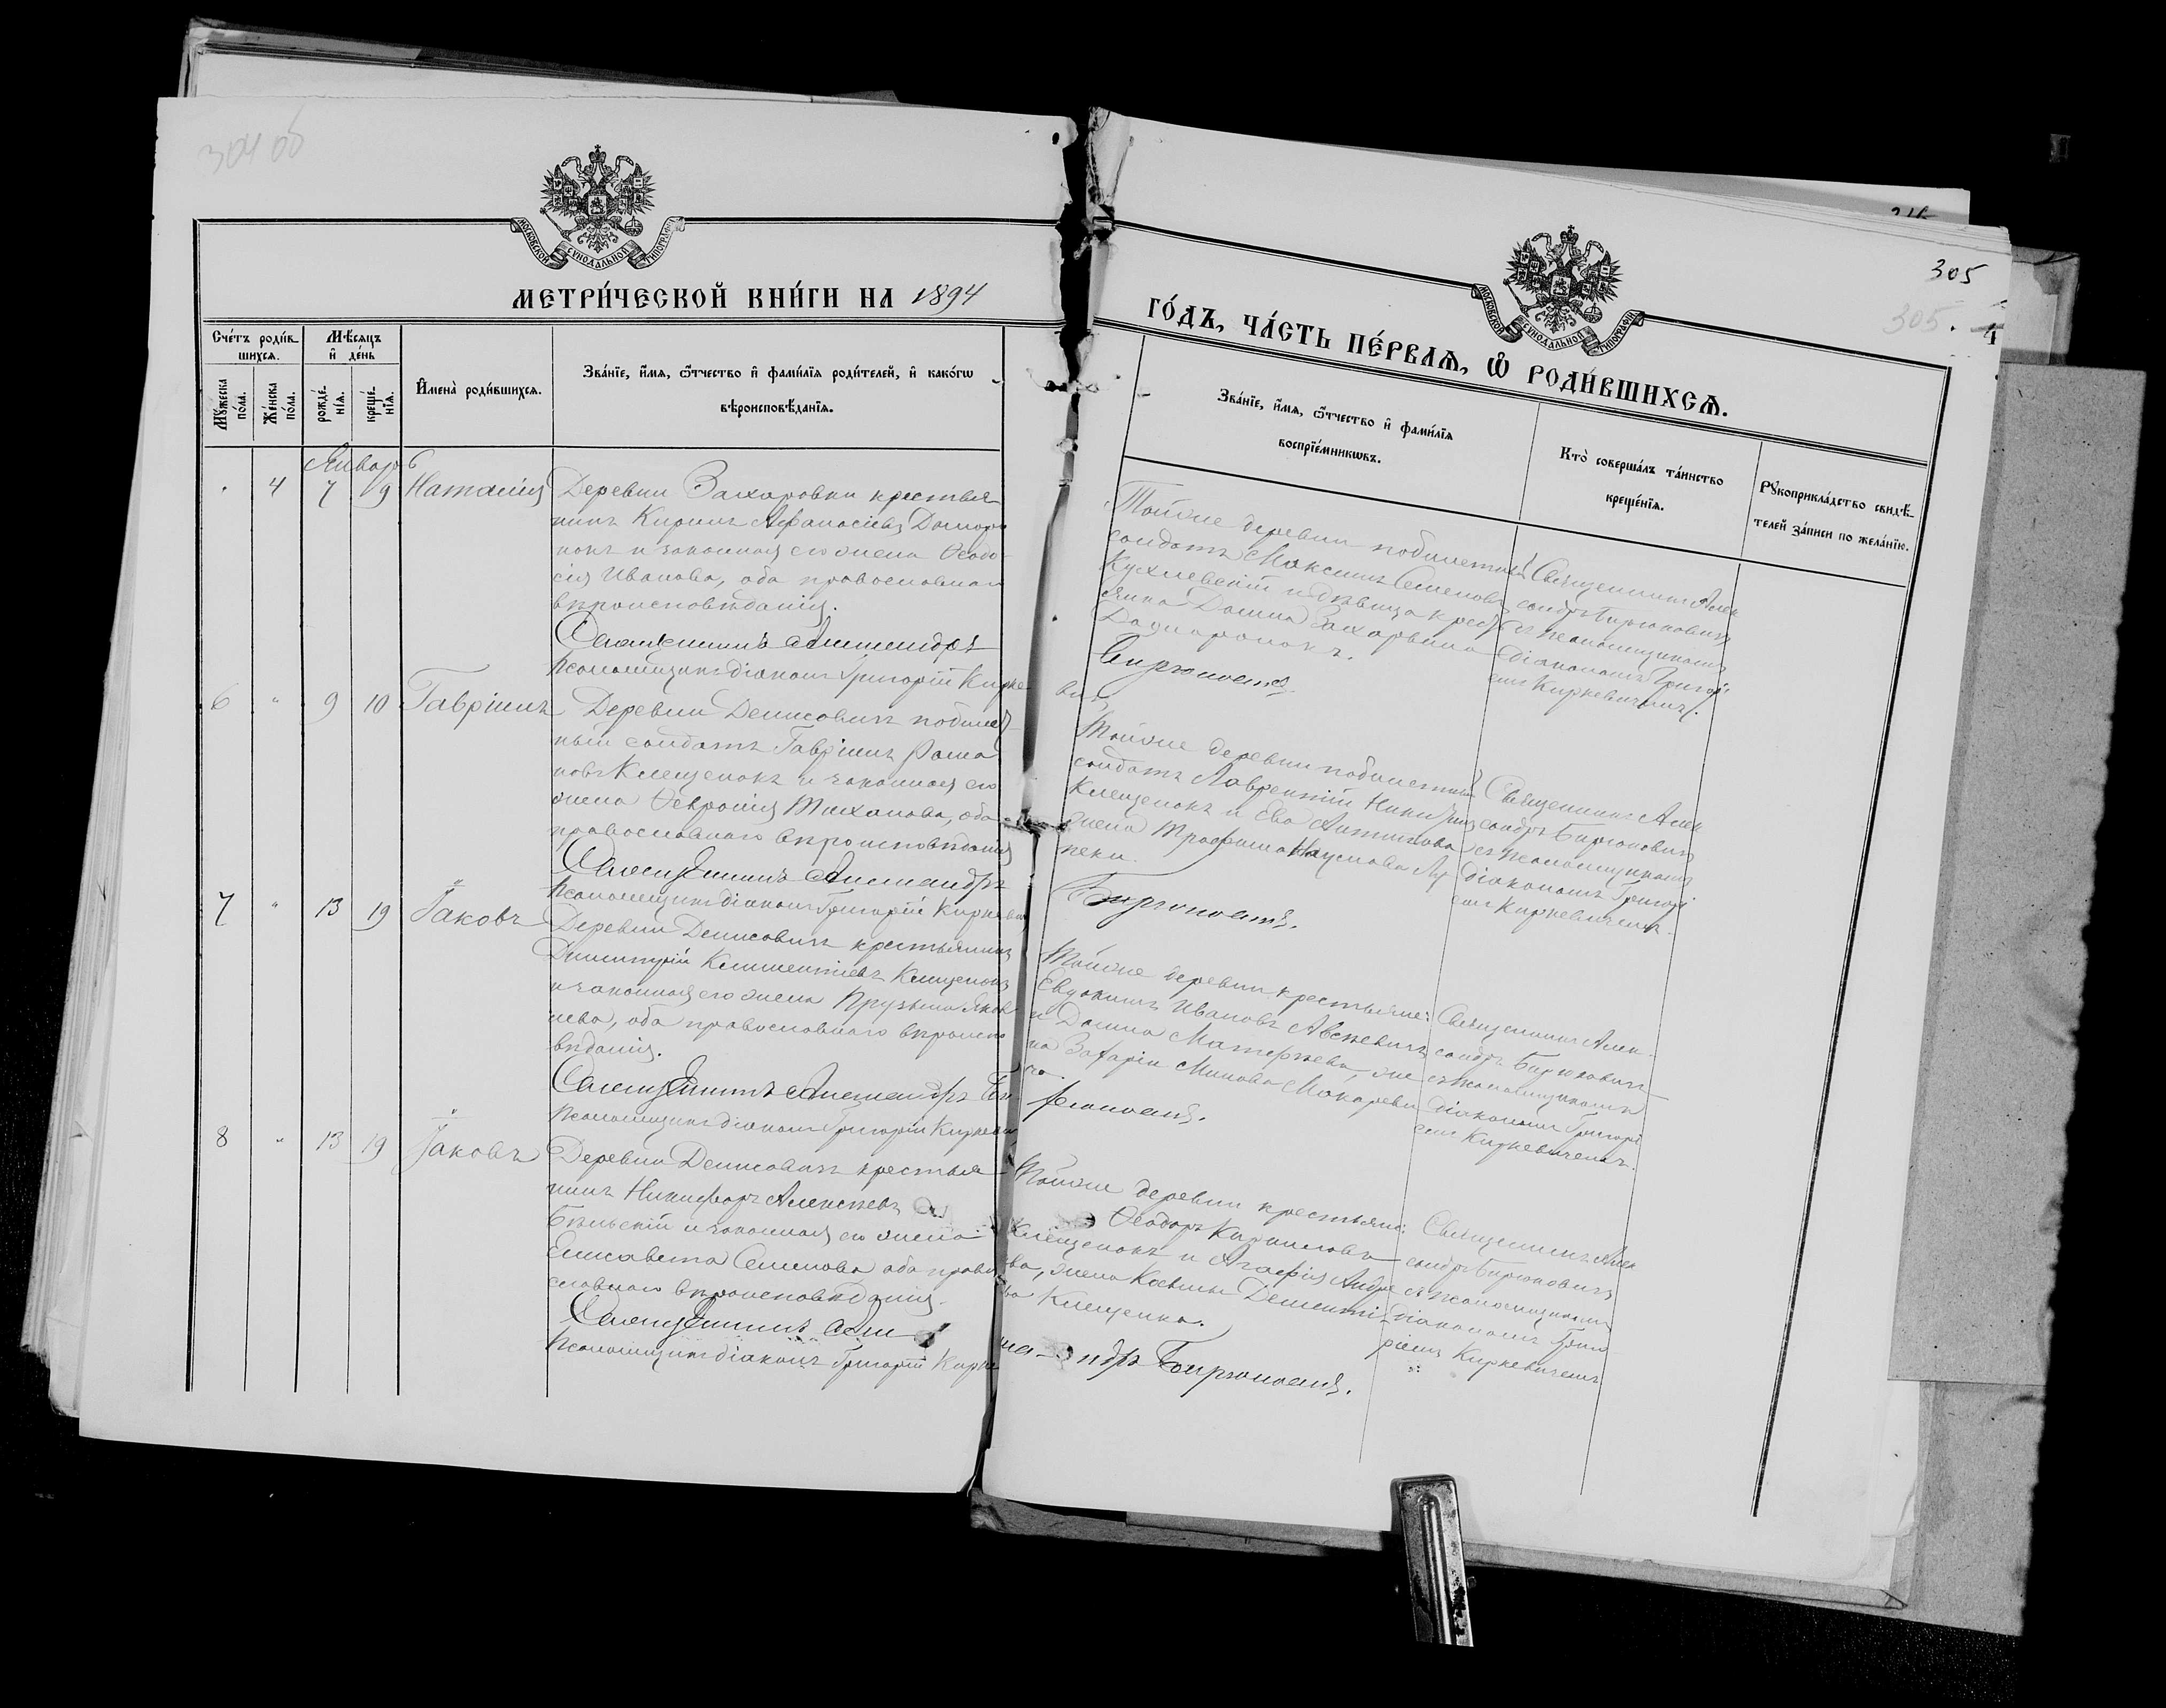 304 об
МОСКОВСКОЙ СѴНОДАЛЬНОЙ ТИПОГРАФІИ
МЕТРИ́ЧЕСКОЙ КНИ́ГИ НА 1894
Сче́тъ роди́в-
шихся.
Мѣ́сяцъ
и҆ де́нь
Мꙋ́жеска
по́ла.
Же́нска
по́ла.
рожде́-
нїѧ.
креще́-
нїѧ.
И҆мена̀ роди́вшихсѧ.
Зва́нїе, и҆́мѧ, ѻ҆́тчество и҆ фами́лїѧ роди́телей, и҆ како́гѡ
вѣроисповѣ́данїѧ.
Январь
4 7 9 Наталія
Деревни Захаровки крестья
нинъ Кирилъ Афанасіевъ
и законная его жена Ѳеодо
сія Иванова, оба православнаго
вѣроисповѣданія.
Священникъ Александръ
Псаломщикъ діаконъ Григорій Кирке
6 " 9 10 Гавріилъ
Деревни Денисовичъ побилет
ный солдатъ Гавріилъ Рома
новъ Клещенокъ и законная его
жена Ѳевронія Тихонова, оба
православнаго вѣроисповѣданія
Священникъ Александръ
Псаломщикъ діаконъ Григорій Киркеви
7 " 13 19 Іаковъ
Деревни Денисовичъ крестьянинъ
Димитрій Климентіевъ Клещенокъ
и законная его жена Прузына Яков
лева, оба православнаго вѣроиспо
вѣданія.
Священникъ Александръ Би
Псаломщикъ діаконъ Григорій Киркеви
8 " 13 19 Іаковъ
Деревни Денисовичъ крестья
нинъ Никифоръ Алексѣевъ
Бѣльскій и законная его жена
Елисавета Семенова оба право
славнаго вѣроисповѣданія.
Священникъ Алек
Псаломщикъ діаконъ Григорій Кирке
305
305.
4
МОСКОВСКОЙ СѴНОДАЛЬНОЙ ТИПОГРАФІИ
ГО́ДЪ, ЧА́СТЬ ПЕ́РВАѦ, Ѡ҆ РОДИ́ВШИХСѦ.
Зва́нїе, и҆́мѧ, ѻ҆́тчество и҆ фами́лїѧ
воспрїе́мникѡвъ.
Кто̀ соверша́лъ та́инство
креще́нїѧ.
Рꙋкоприкла́дство свидѣ́-
телей за́писи по жела́нїю.
Тойже деревни побилетный
солдатъ Максимъ Семеновъ
Кухлевскій и дѣвица крест
янка Домна Захарьина
Бирюковичъ
вичъ
Священникъ Алек
сандръ Бирюковичъ
съ псаломщикомъ
діакономъ Григорі
емъ Киркевичемъ.
Тойже деревни побилетный
солдатъ Лаврентій
Клещенокъ и Ева Антипова
жена Трофима Наумова
пеки.
Бирюковичъ.
Священникъ Алек
сандръ Бирюковичъ
съ псаломщикомъ
діакономъ Григорі
емъ Киркевичемъ.
Тойже деревни крестьяне:
Евдокимъ Ивановъ Авсѣевичъ
и Домна Матѳѣева, же
на Захаріи Минова Макареви
ча.
рюковичъ.
Священникъ Алек
сандръ Бирюковичъ
съ псаломщикомъ
діакономъ Григорі
емъ Киркевичемъ.
Тойже деревни крестьяне:
Ѳеодоръ Кирилловъ
Клещенокъ и Агафія Андре
ева, жена Космы Дементі
ева Клещенка.
андръ Бирюковичъ.
Священникъ Алек
сандръ Бирюковичъ
съ псаломщикомъ
діакономъ Григо
ріемъ Киркевичемъ